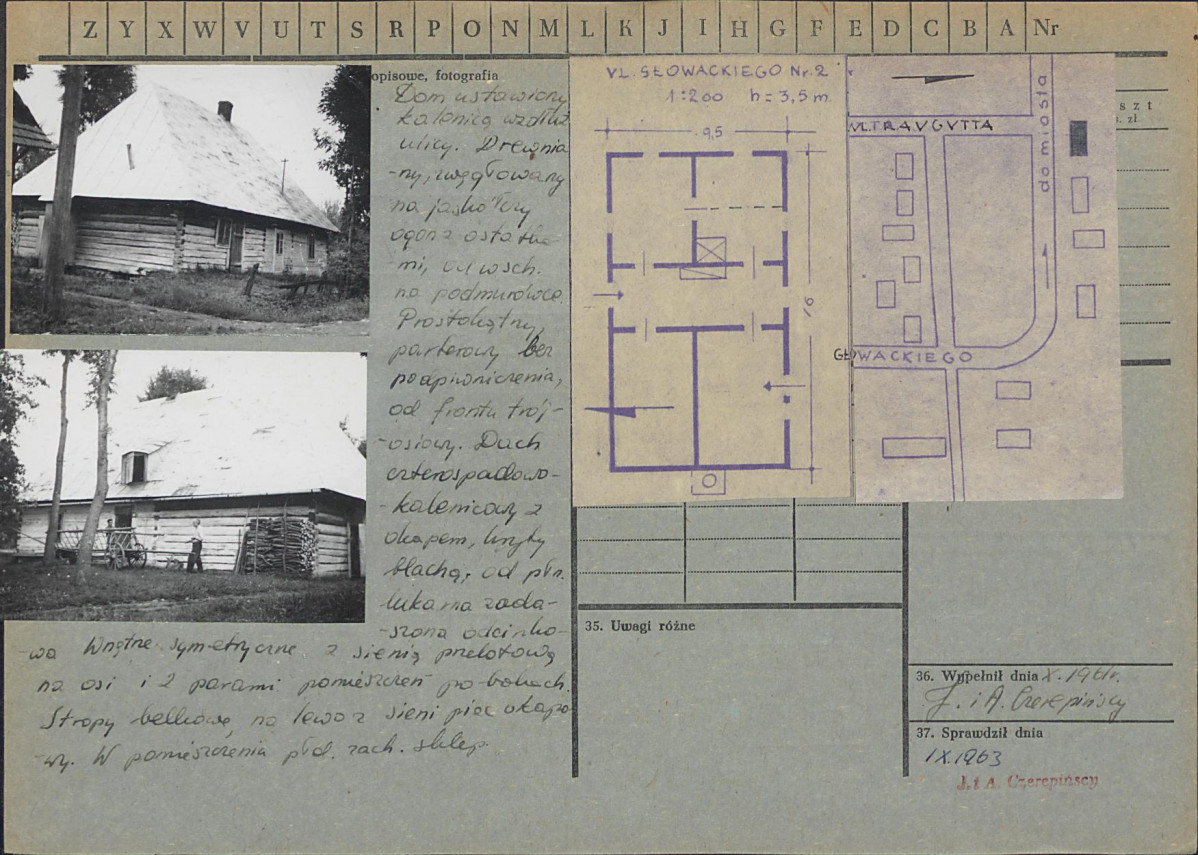 Z Y X W V U T S R P O N M L K J I H G F E D C B A Nr
opisowe, fotografia
Dom ustawiony
kalenicą wzdłuż
ulicy. Drewnia
-ny, węgłowany
na jaskółczy
ogon z ostatka
mi, od wsch.
na podmurówce.
Prostokątny,
parterowy bez
podpiwniczenia,
od frontu trój-
-osiowy. Dach
czterospadowo-
-kalenicowy z
okapem, kryty
blachą, od płn.
lukarna zada-
-szona odcinko-
-wo Wnętrze symetryczne z sienią przelotową
na osi i 2 parami pomieszczeń po bokach.
Stropy belkowe, na lewo z sieni piec okapo
-wy. W pomieszczeniu płd. zach. sklep.
VL. SŁOWACKIEGO Nr. 2
1:200 h = 3,5 m.
9,5
16
VL. TRAVGVTTA
do miasta
GŁOWACKIEGO
szt
zł
35. Uwagi różne
36. Wypełnił dnia X. 1961r.
J. i A. Czerepińscy
37. Sprawdził dnia
IX.1963
J. i A. Czerepińscy